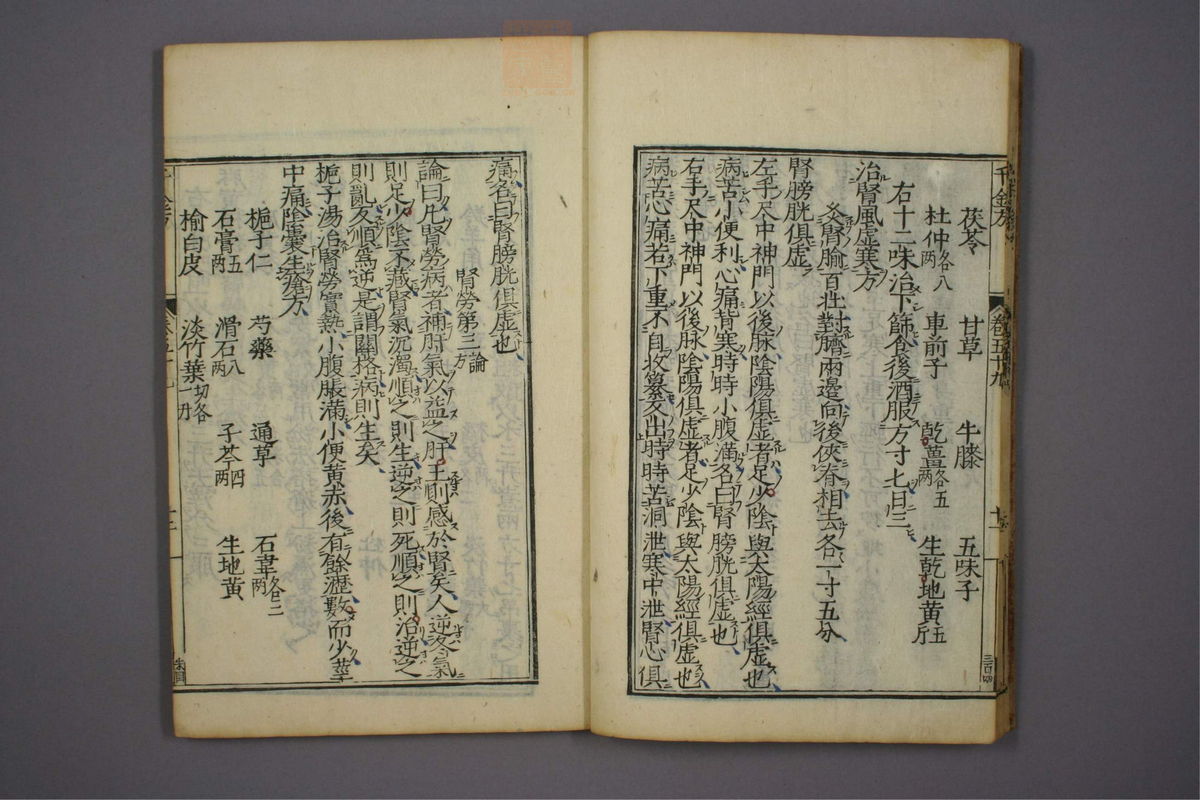 茯苓 甘草 牛膝 五味子
杜仲各八兩 車前子 乾薑各五兩 生乾地黄五斤
右十二味治下篩食後酒服方寸七日三
治腎風虚寒方
灸腎腧百壮對臍兩邊向後俠脊相去各一寸五分
腎膀胱俱虚
左手尺中神門以後脉陰陽俱虚者足少陰與太陽經俱虚也
病苦小便利心痛背寒時時小腹滿名曰腎膀胱俱虚也
右手尺中神門以後脉陰陽俱虚者足少陰與太陽經俱虚也
病苦心痛若下重不自收篡反出時時苦洞泄寒中泄腎心俱
千金方 卷五十九
痛名曰腎膀胱俱虚也
腎勞第三 論 方
論曰凡腎勞病者補肝氣以益之肝王則感於腎矣人逆冬氣
則足少陰不藏腎氣沉濁順之則生逆之則死順之則治逆之
則亂反順爲逆是謂關格病則生矣
梔子湯治腎勞實熱小腹脹滿小便黄赤後有餘瀝數而少莖
中痛陰囊生瘡方
梔子仁 芍藥 通草 石韋各三兩
石膏五兩 滑石八兩 子芩四兩 生地黄
榆白皮 淡竹葉切各一升